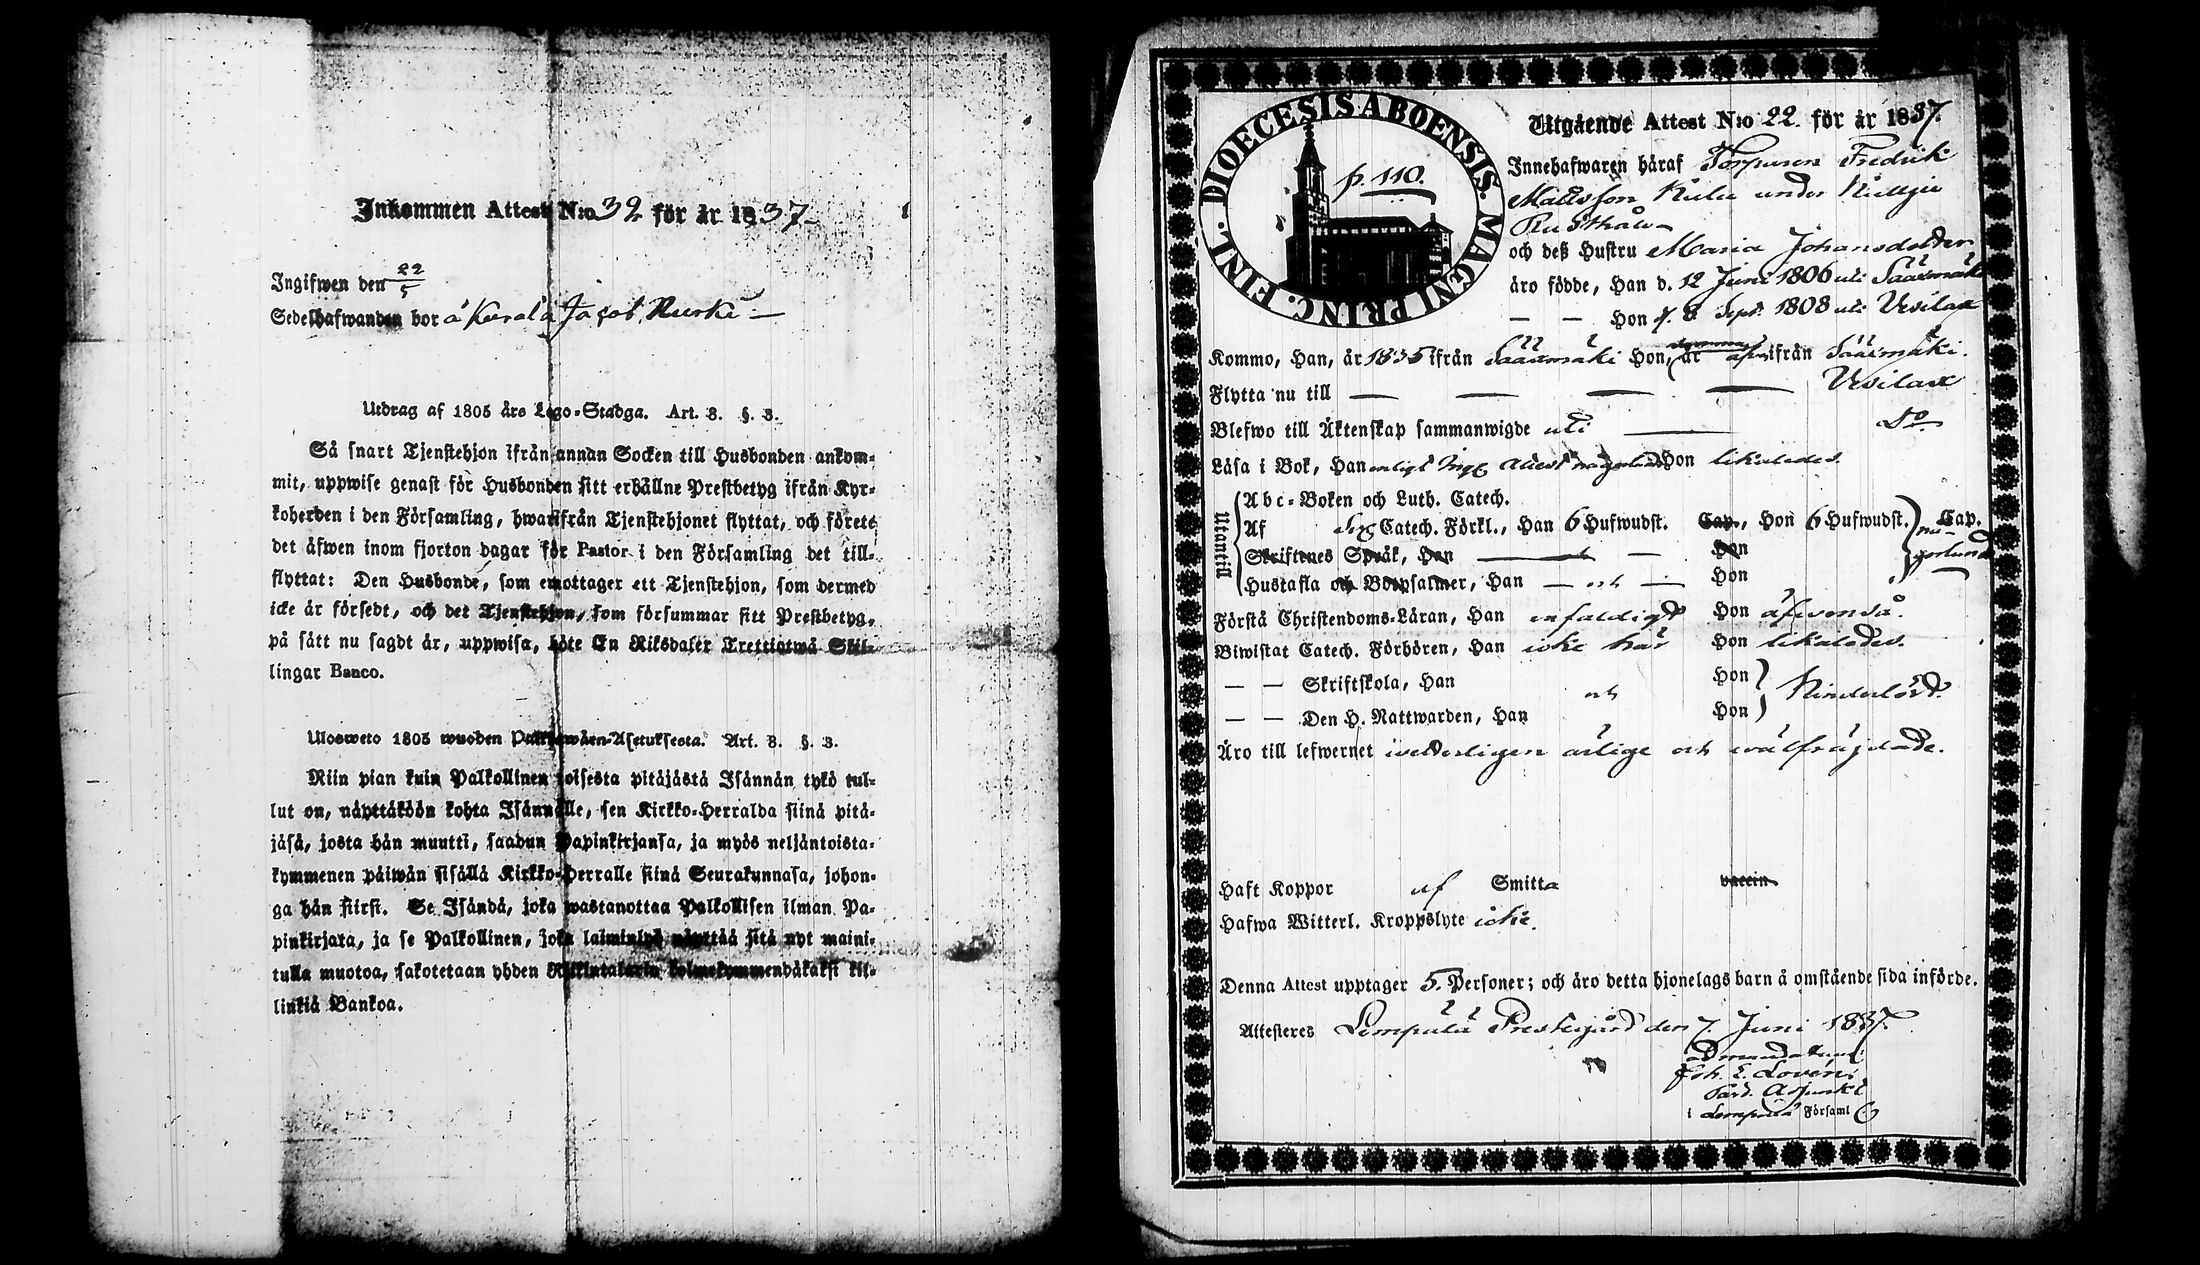 Inkommen Attest N:o 32 för år 1837
Ingifwen den 22/5
Sedelhafwanden bor å Kurala Jacob
Utdrag af 1805 års Lego-Stadga. Art. 8. §. 3.
Så snart Tjenstehjon ifrån annan Socken till Husbonden ankom-
mit, uppwise genast för Husbonden sitt erhållne Prestbetyg ifrån Kyr-
koherden i den Församling, hwarifrån Tjenstehjonet flyttat, och förete
det äfwen inom fjorton dagar för Pastor i den Församling det till-
flyttat: Den Husbonde, som emottager ett Tjenstehjon, som dermed
icke är försedt, och det Tjenstehjon, som försummar sitt Prestbetyg,
på sätt nu sagdt är, uppwisa, böte En Riksdaler Trettiotwå Skil-
lingar Banco.
Ulosweto 1805 wuoden Palkkawäen-Asetuksesta. Art. 8. §. 3.
Niin pian kuin Palkollinen toisesta pitäjästä Isännän tykö tul-
lut on, näyttäköön kohta Isännälle, sen Kirkko-Herralda siinä pitä-
jäsä, josta hän muutti, saadun Papinkirjansa, ja myös neljäntoista-
kymmenen päiwän sisällä Kirkko-Herralle siinä Seurakunnasa, johon-
ga hän siirsi. Se Isändä, joka wastanottaa Palkollisen ilman Pa-
pinkirjata, ja se Palkollinen, joka laiminlyö näyttää sitä nyt maini-
tulla muotoa, sakotetaan yhden Riikintalarin kolmekymmendäkaksi kil-
linkiä Bankoa.
DIOECESIS ABOENSIS. MAGNI PRINC. FINL.
p. 110.
Utgående Attest N:o 22 för år 1837.
Innehafwaren häraf Torparen Fredrik
Mattsson under
Rusthåll
och deß Hustru Maria Johansdotter
äro födde, Han d. 12 Juni 1806 uti Sääxmäki
— — Hon d. 8 Sept. 1808 uti Vesilax
Kommo, Han, år 1835 ifrån Sääxmäki Hon, år ifrån Sääxmäki.
Flytta nu till — — — — Vesilax
Blefwo till Äktenskap sammanwigde uti — Do
Läsa i Bok, Han enligt Hon likaledes.
Utantill
Abc-Boken och Luth. Catech.
Af Catech. Förkl., Han 6 Hufwudst. Cap., Hon 6 Hufwudst. Cap.
Skriftenes Språk, Han — — Hon
Hustafla och Botpsalmer, Han — och — Hon
Förstå Christendoms-Läran, Han enfaldigt Hon äfvenså.
Biwistat Catech. Förhören, Han icke här Hon likaledes.
— — Skriftskola, Han Hon
och
— — Den H. Nattwarden, Han Hon
Äro till lefwernet ärlige och wälfrägdade.
Haft Koppor af Smitta vaccin
Hafwa Witterl. Kroppslyte icke.
Denna Attest upptager 5. Personer; och äro detta hjonelags barn å omstående sida införde.
Attesteres Lempälä Prestegård den 7. Juni 1837.
ad mandatum
Joh. E. Lovén
Past. Adjunkt
i Lempälä Församl